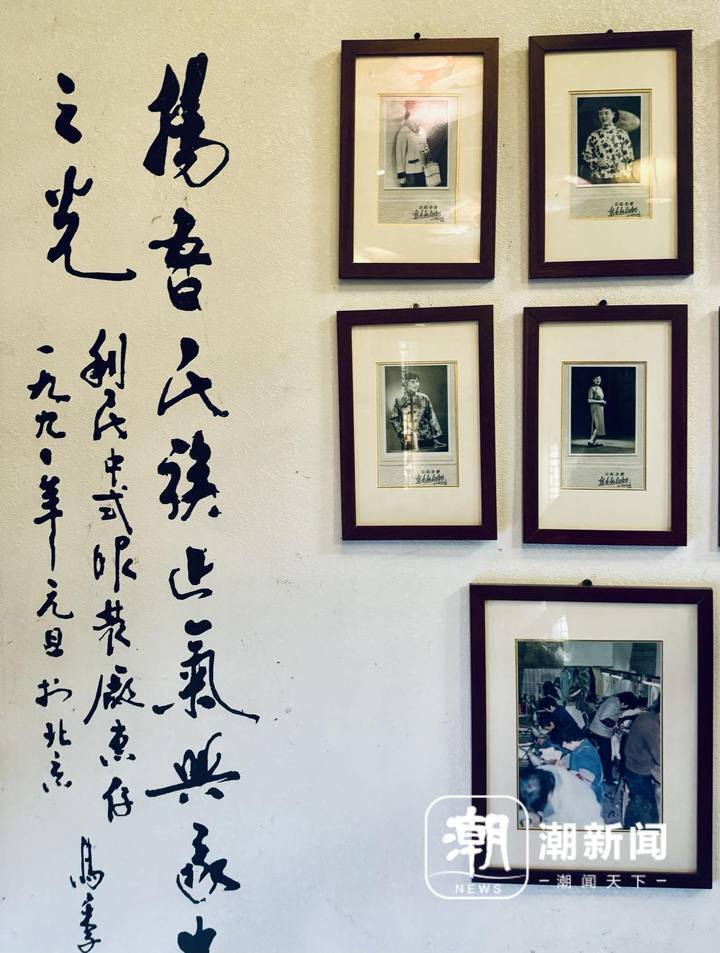 揚吾民族正氣與
之光
利民中式服裝廠惠存
一九九〇年元旦於北京
馬季
潮
NEWS
潮新闻
潮闻天下